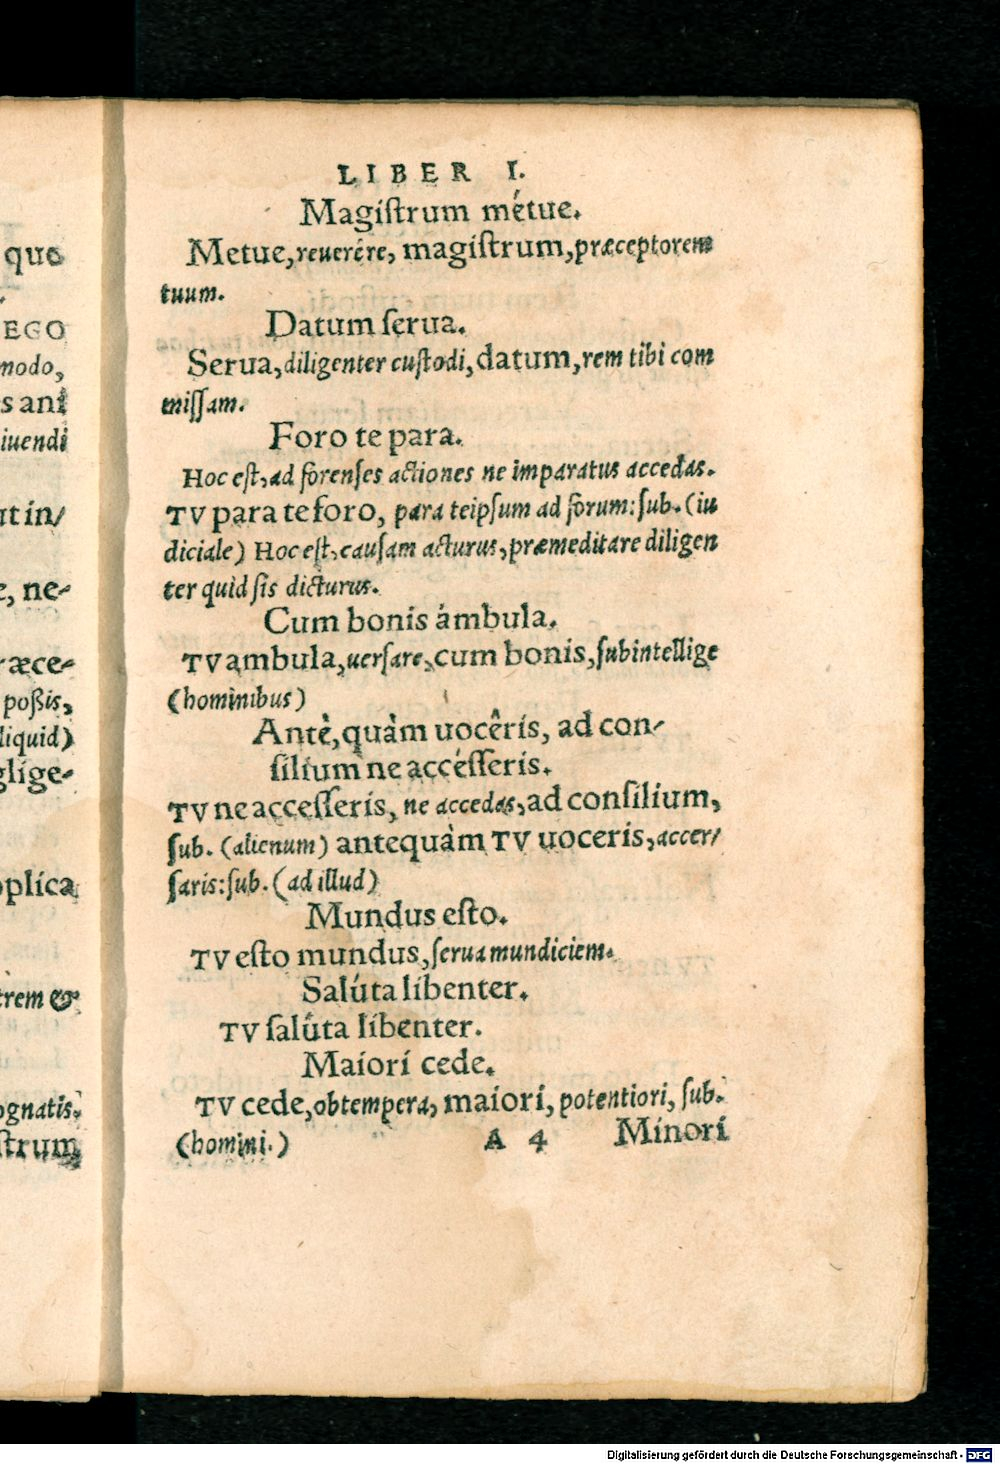 quo
EGO
modo,
s ani
iuendi
ut in/
e, ne-
ræce-
poßis,
liquid)
glige-
pplica
trem &
ognatis.
strum
LIBER I.
Magiſtrum métue.
Metue, reuerére, magiſtrum, præceptorem
tuum.
Datum ſerua.
Serua, diligenter cuſtodi, datum, rem tibi com
miſſam.
Foro te para.
Hoc eſt, ad forenſes actiones ne imparatus accedas.
TV para te foro, para teipſum ad forum: ſub. (iu
diciale) Hoc eſt, cauſam acturus, præmeditare diligen
ter quid ſis dicturus.
Cum bonis ámbula.
TV ambula, uerſare, cum bonis, ſubintellige
(hominibus)
Antè, quàm uocêris, ad con/
ſilium ne accéſſeris.
TV ne acceſſeris, ne accedas, ad conſilium,
ſub. (alienum) antequàm TV uoceris, accer/
ſaris: ſub. (ad illud)
Mundus eſto.
TV eſto mundus, ſerua mundiciem.
Salúta libenter.
TV ſalûta libenter.
Maiori cede.
TV cede, obtempera, maiori, potentiori, ſub.
(homini.) A 4 Minori
Digitalisierung gefördert durch die Deutsche Forschungsgemeinschaft - DFG